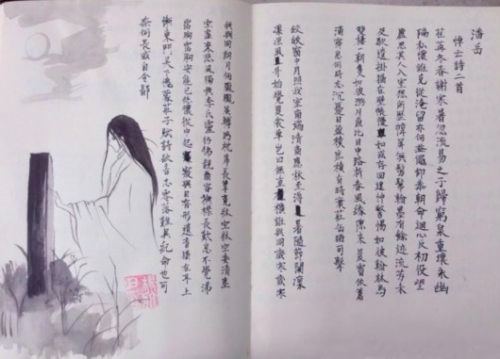 潘岳
悼亡詩二首
荏苒冬春謝寒暑忽流易之子歸窮泉重壤永幽
隔私懷誰克從淹留亦何益僶俛恭朝命迴心反初役望
廬思其人入室想所歷幃屏無髣髴翰墨有餘迹流芳未
及歇遺掛猶在壁悵怳如或存回遑忡驚惕如彼翰林鳥
雙棲一朝隻如彼游川魚比目中路析春風緣隙來晨霤依簷
滴寢息何時忘沉憂日盈積庶幾有時衰莊缶猶可擊
皎皎窗中月照我室南端清商應秋至溽暑隨節闌凜
凜涼風升始覺夏衾單豈曰無重纊誰與同歲寒歲寒
無與同朗月何朧朧展轉眄枕席長簟竟床空床空委清塵
室虛來悲風獨無李氏靈彷彿覩爾容撫衿長歎息不覺涕
霑胸霑胸安能已悲懷從中起寢興目存形遺音猶在耳上
慚東門吳下愧蒙莊子賦詩欲言志零落難具紀命也可
奈何長戚自令鄙